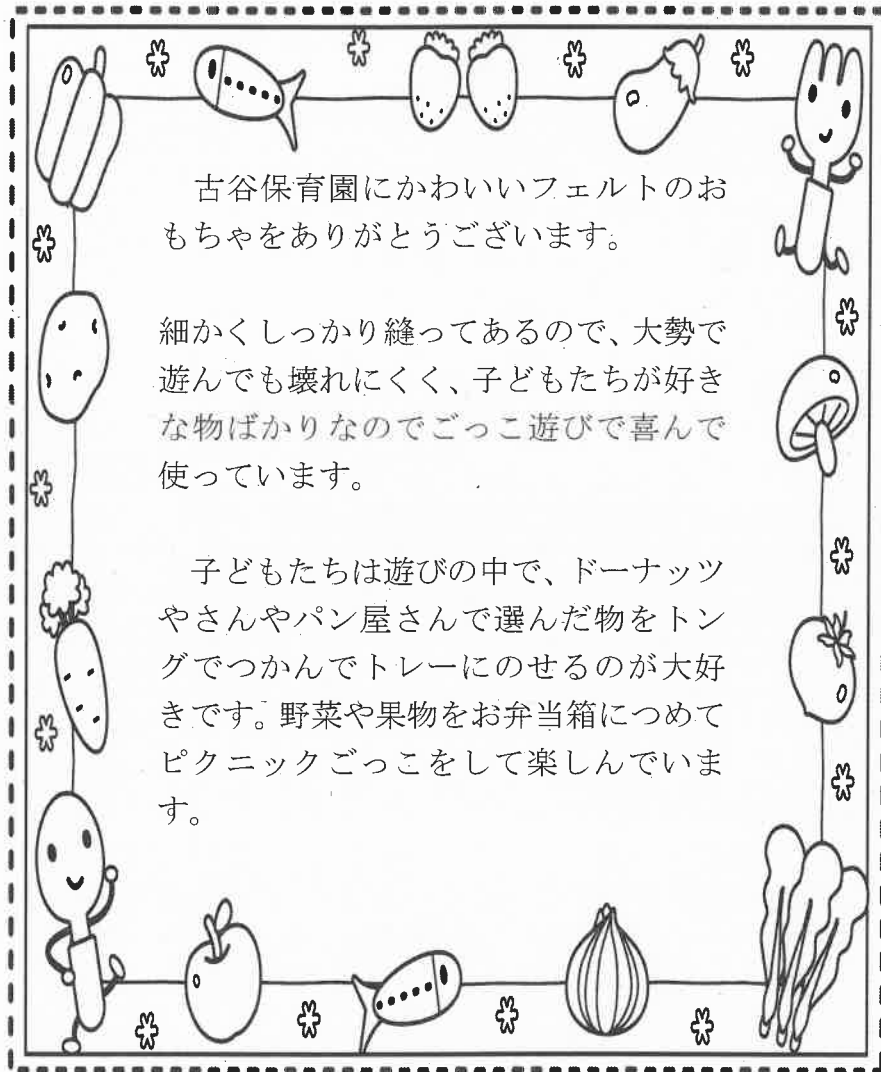 古谷保育園にかわいいフェルトのお
もちゃをありがとうございます。
細かくしっかり縫ってあるので、大勢で
遊んでも壊れにくく、子どもたちが好き
な物ばかりなのでごっこ遊びで喜んで
使っています。
子どもたちは遊びの中で、ドーナッツ
やさんやパン屋さんで選んだ物をトン
グでつかんでトレーにのせるのが大好
きです。野菜や果物をお弁当箱につめて
ピクニックごっこをして楽しんでいま
す。